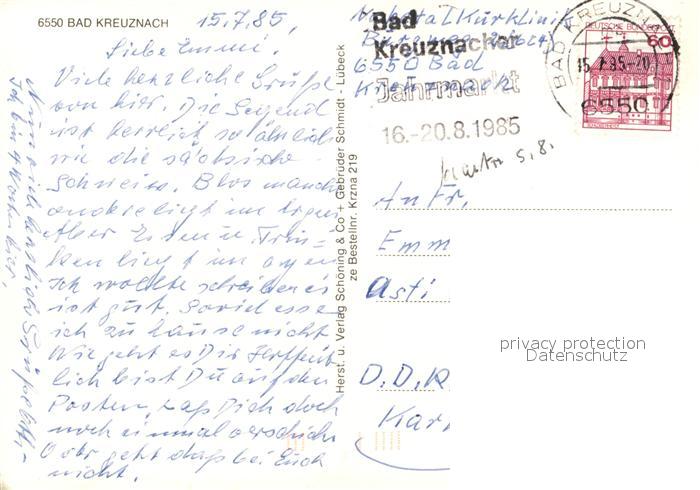 6550 BAD KREUZNACH
15.7.85,
Liebe Emmi.
Viele herzliche Grüße
von hier. Die Gegend
ist herrlich so ähnlich
wie die säcksische
Schweiz. Blos manch
andere liegt im argen
Aber Essen u. Trin-
ken liegt im argen
Ich wollte schreiben es
ist gut. Soviel esse
ich zu hause nicht
Wie geht es Dir Hoffent
lich bist Du auf den
Posten, laß Dich doch
noch einmal verschicke
Oder geht daß bei Euch
nicht.
Nun viele herzliche Grüße
Ich bin 4 Wochen hier,
Herst. u. Verlag Schöning & Co + Gebrüder Schmidt - Lübeck
ze Bestellnr. Krzna 219
Kurklinik
6550 Bad
Kreuznach
Bad
Kreuznacher
Jahrmarkt
16.-20.8.1985
BAD KREUZN
15.7.85-20
6550
DEUTSCHE BUNDESPOST
60
5.8.
An Fr.
Emm
Asti
D.D.R
Kar
privacy protection
Datenschutz